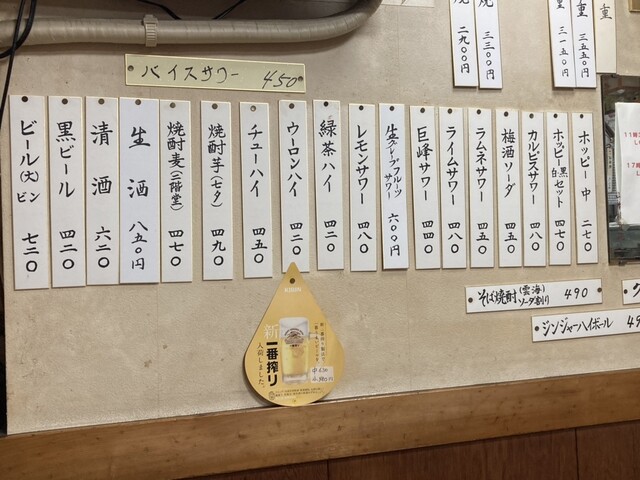 バイスサワー 450
ホッピー 中 二七〇
ホッピー 白黒 セット 四七〇
カルピスサワー 四八〇
梅酒ソーダ 四五〇
ラムネサワー 四五〇
ライムサワー 四八〇
巨峰サワー 四四〇
生グレープフルーツサワー 六〇〇円
レモンサワー 四八〇
緑茶ハイ 四二〇
ウーロンハイ 四二〇
チューハイ 四五〇
焼酎芋(七夕) 四九〇
焼酎麦(二階堂) 四七〇
生酒 八五〇円
清酒 六二〇
黒ビール 四二〇
ビール(大)ビン 七二〇
そば焼酎(雲海)ソーダ割り 490
ジンジャーハイボール
KIRIN
新一番搾り
入荷しました。
二九〇〇円
三三〇〇円
重 三一五〇円
重 三五五〇円
重